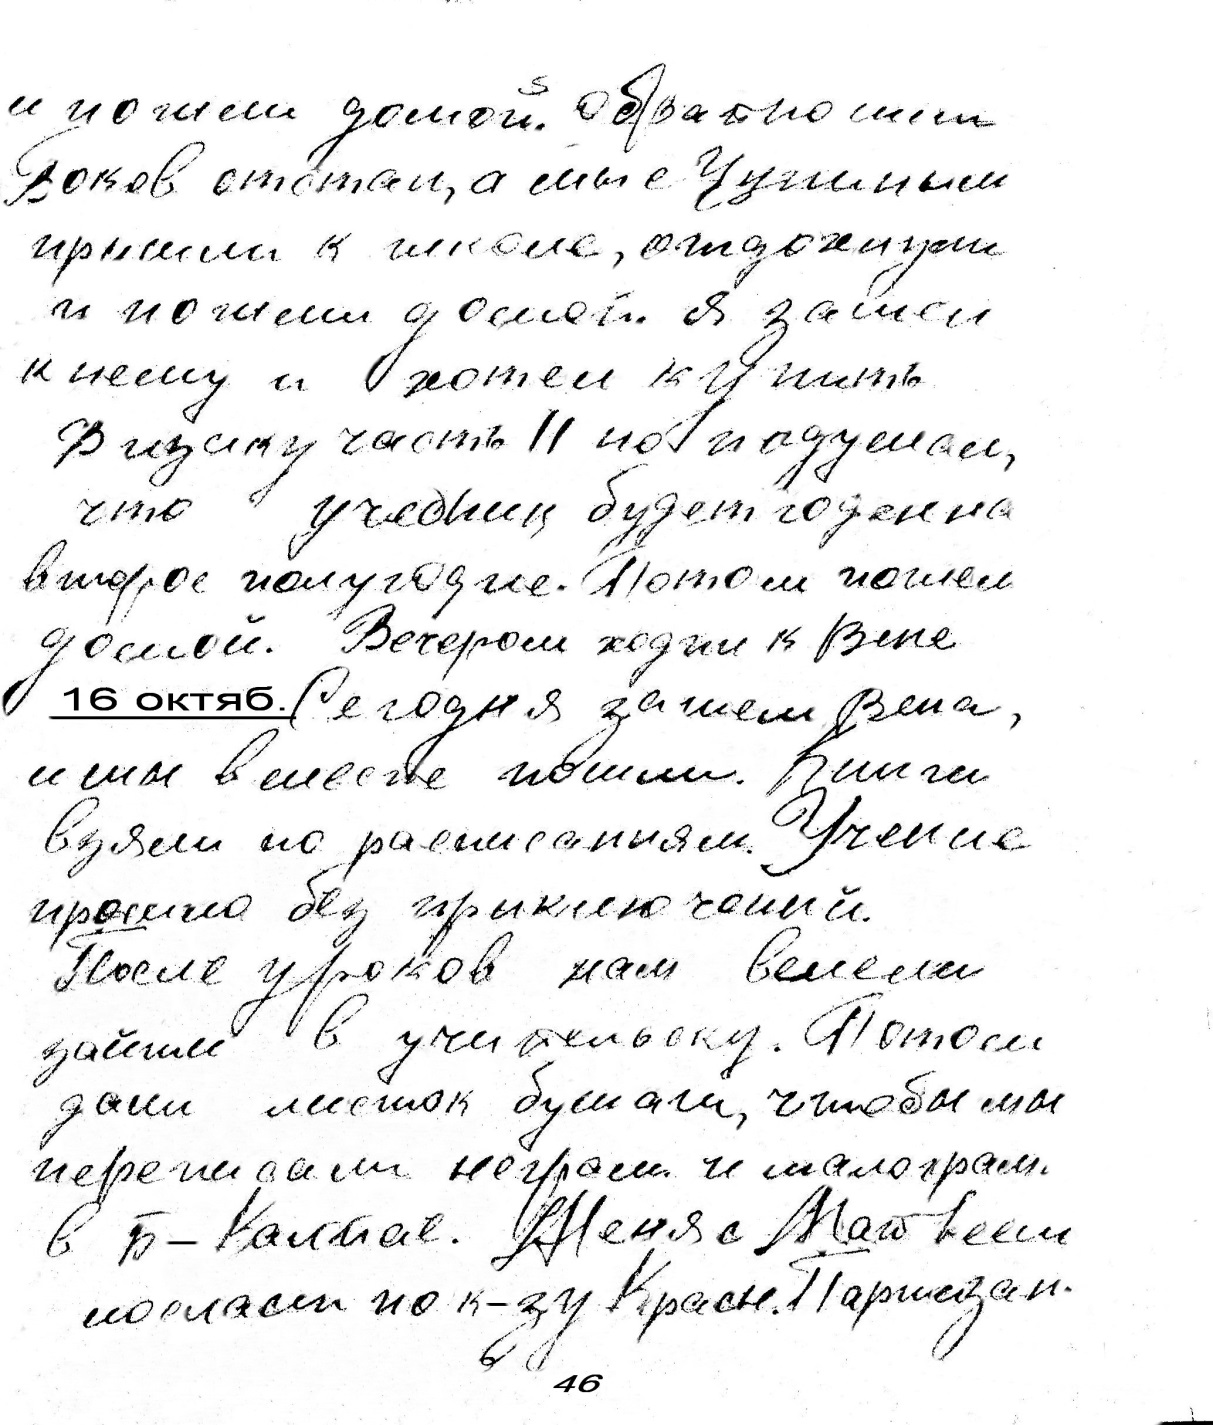 и пошли домой. Обратно шли
Боков отстал, а мы с Чузиным
пришли к школе, отдохнули
и пошли домой. Я зашел
к нему и хотел купить
Физику часть II но подумал,
что учебник будет годен на
второе полугодие. Потом пошел
домой. Вечером ходил к Вене
16 октяб. Сегодня зашел Вена,
и мы вместе пошли. Книги
взяли по расписаниям. Учение
прошло без приключений.
После уроков нам велели
зайти в учительску. Потом
дали листок бумаги, чтобы мы
переписали неграм. и малограм.
в Б-Калтае. Меня с Матвеем
послали по к-зу Красн. Партизан.
46